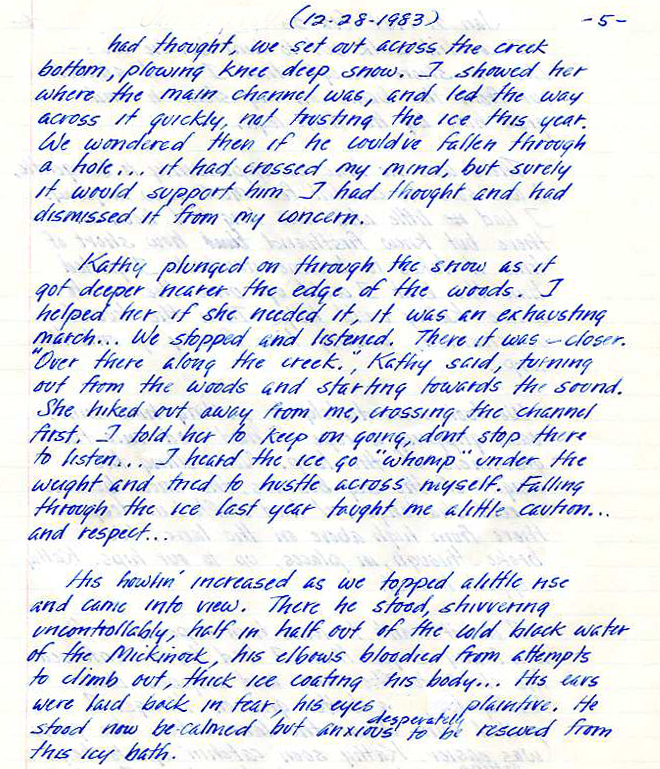 (12-28-1983) -5-
had thought, we set out across the creek
bottom, plowing knee deep snow. I showed her
where the main channel was, and led the way
across it quickly, not trusting the ice this year.
We wondered then if he could've fallen through
a hole... it had crossed my mind, but surely
it would support him I had thought and had
dismissed it from my concern.
Kathy plunged on through the snow as it
got deeper nearer the edge of the woods. I
helped her if she needed it, it was an exhausting
march... We stopped and listened. There it was – closer.
"Over there along the creek.", Kathy said, turning
out from the woods and starting towards the sound.
She hiked out away from me, crossing the channel
first. I told her to keep on going, dont stop there
to listen... I heard the ice go "whomp" under the
weight and tried to hustle across myself. Falling
through the ice last year taught me alittle caution...
and respect...
His howlin' increased as we topped alittle rise
and came into view. There he stood, shivvering
uncontrollably, half in half out of the cold black water
of the Mickinock, his elbows bloodied from attempts
to climb out, thick ice coating his body... His ears
were laid back in fear, his eyes desperately plaintive. He
stood now be-calmed but anxious to be rescued from
this icy bath.